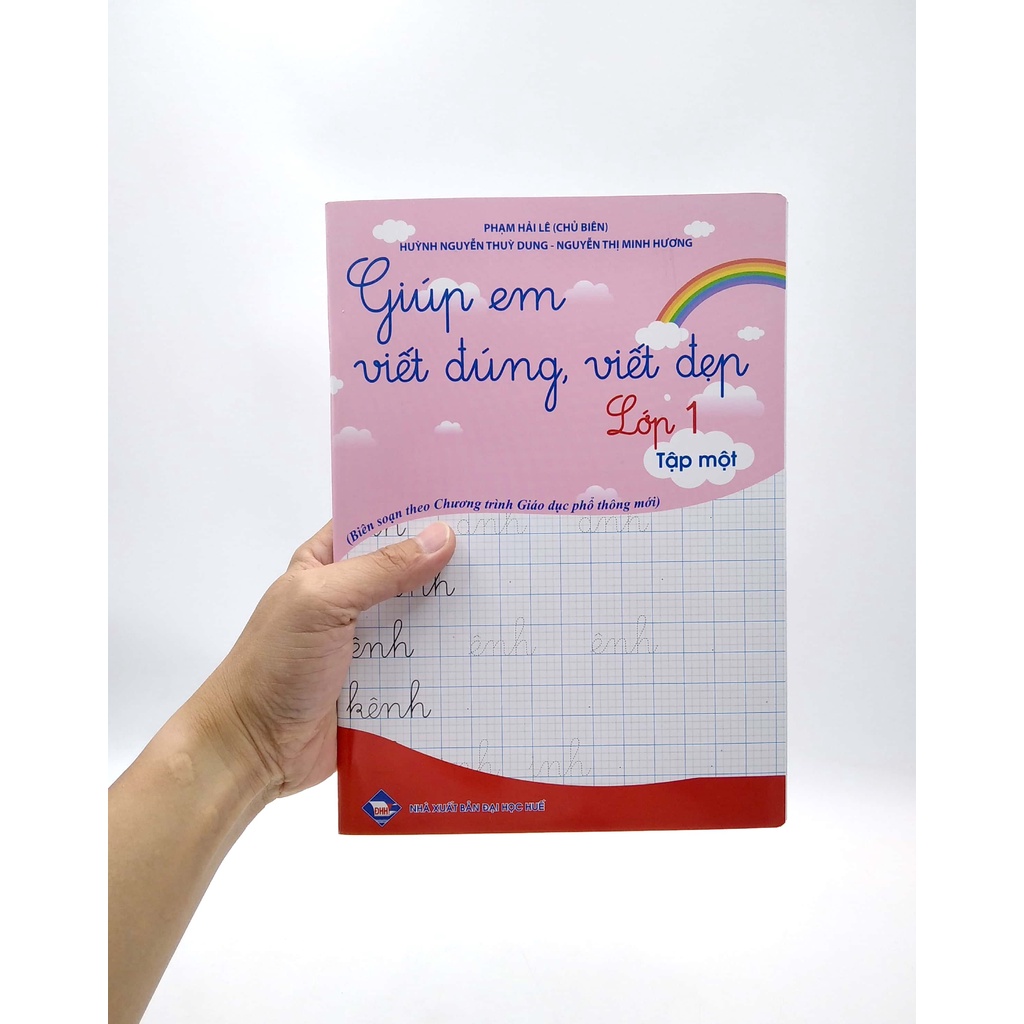 PHẠM HẢI LÊ (CHỦ BIÊN)
HUỲNH NGUYỄN THUỲ DUNG - NGUYỄN THỊ MINH HƯƠNG
Giúp em
viết đúng, viết đẹp
Lớp 1
Tập một
(Biên soạn theo Chương trình Giáo dục phổ thông mới)
anh anh
ênh ênh ênh
kênh
inh
ĐHH
NHÀ XUẤT BẢN ĐẠI HỌC HUẾ